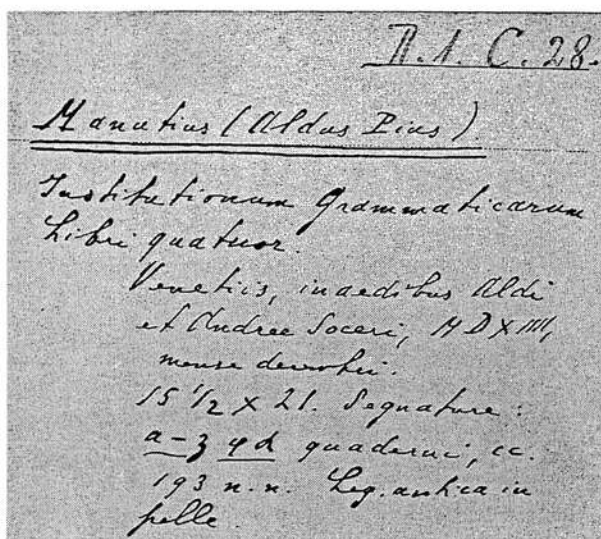 B.1. C. 28.
Manutius (Aldus Pius)
Institutionum Grammaticarum
Libri quatuor.
Venetiis, in aedibus Aldi
et Andree Soceri, MDXIIII,
mense decembri.
15 1/2 X 21. Segnature:
a-z quaderni, cc.
193 n.n. Leg. antica in
pelle.